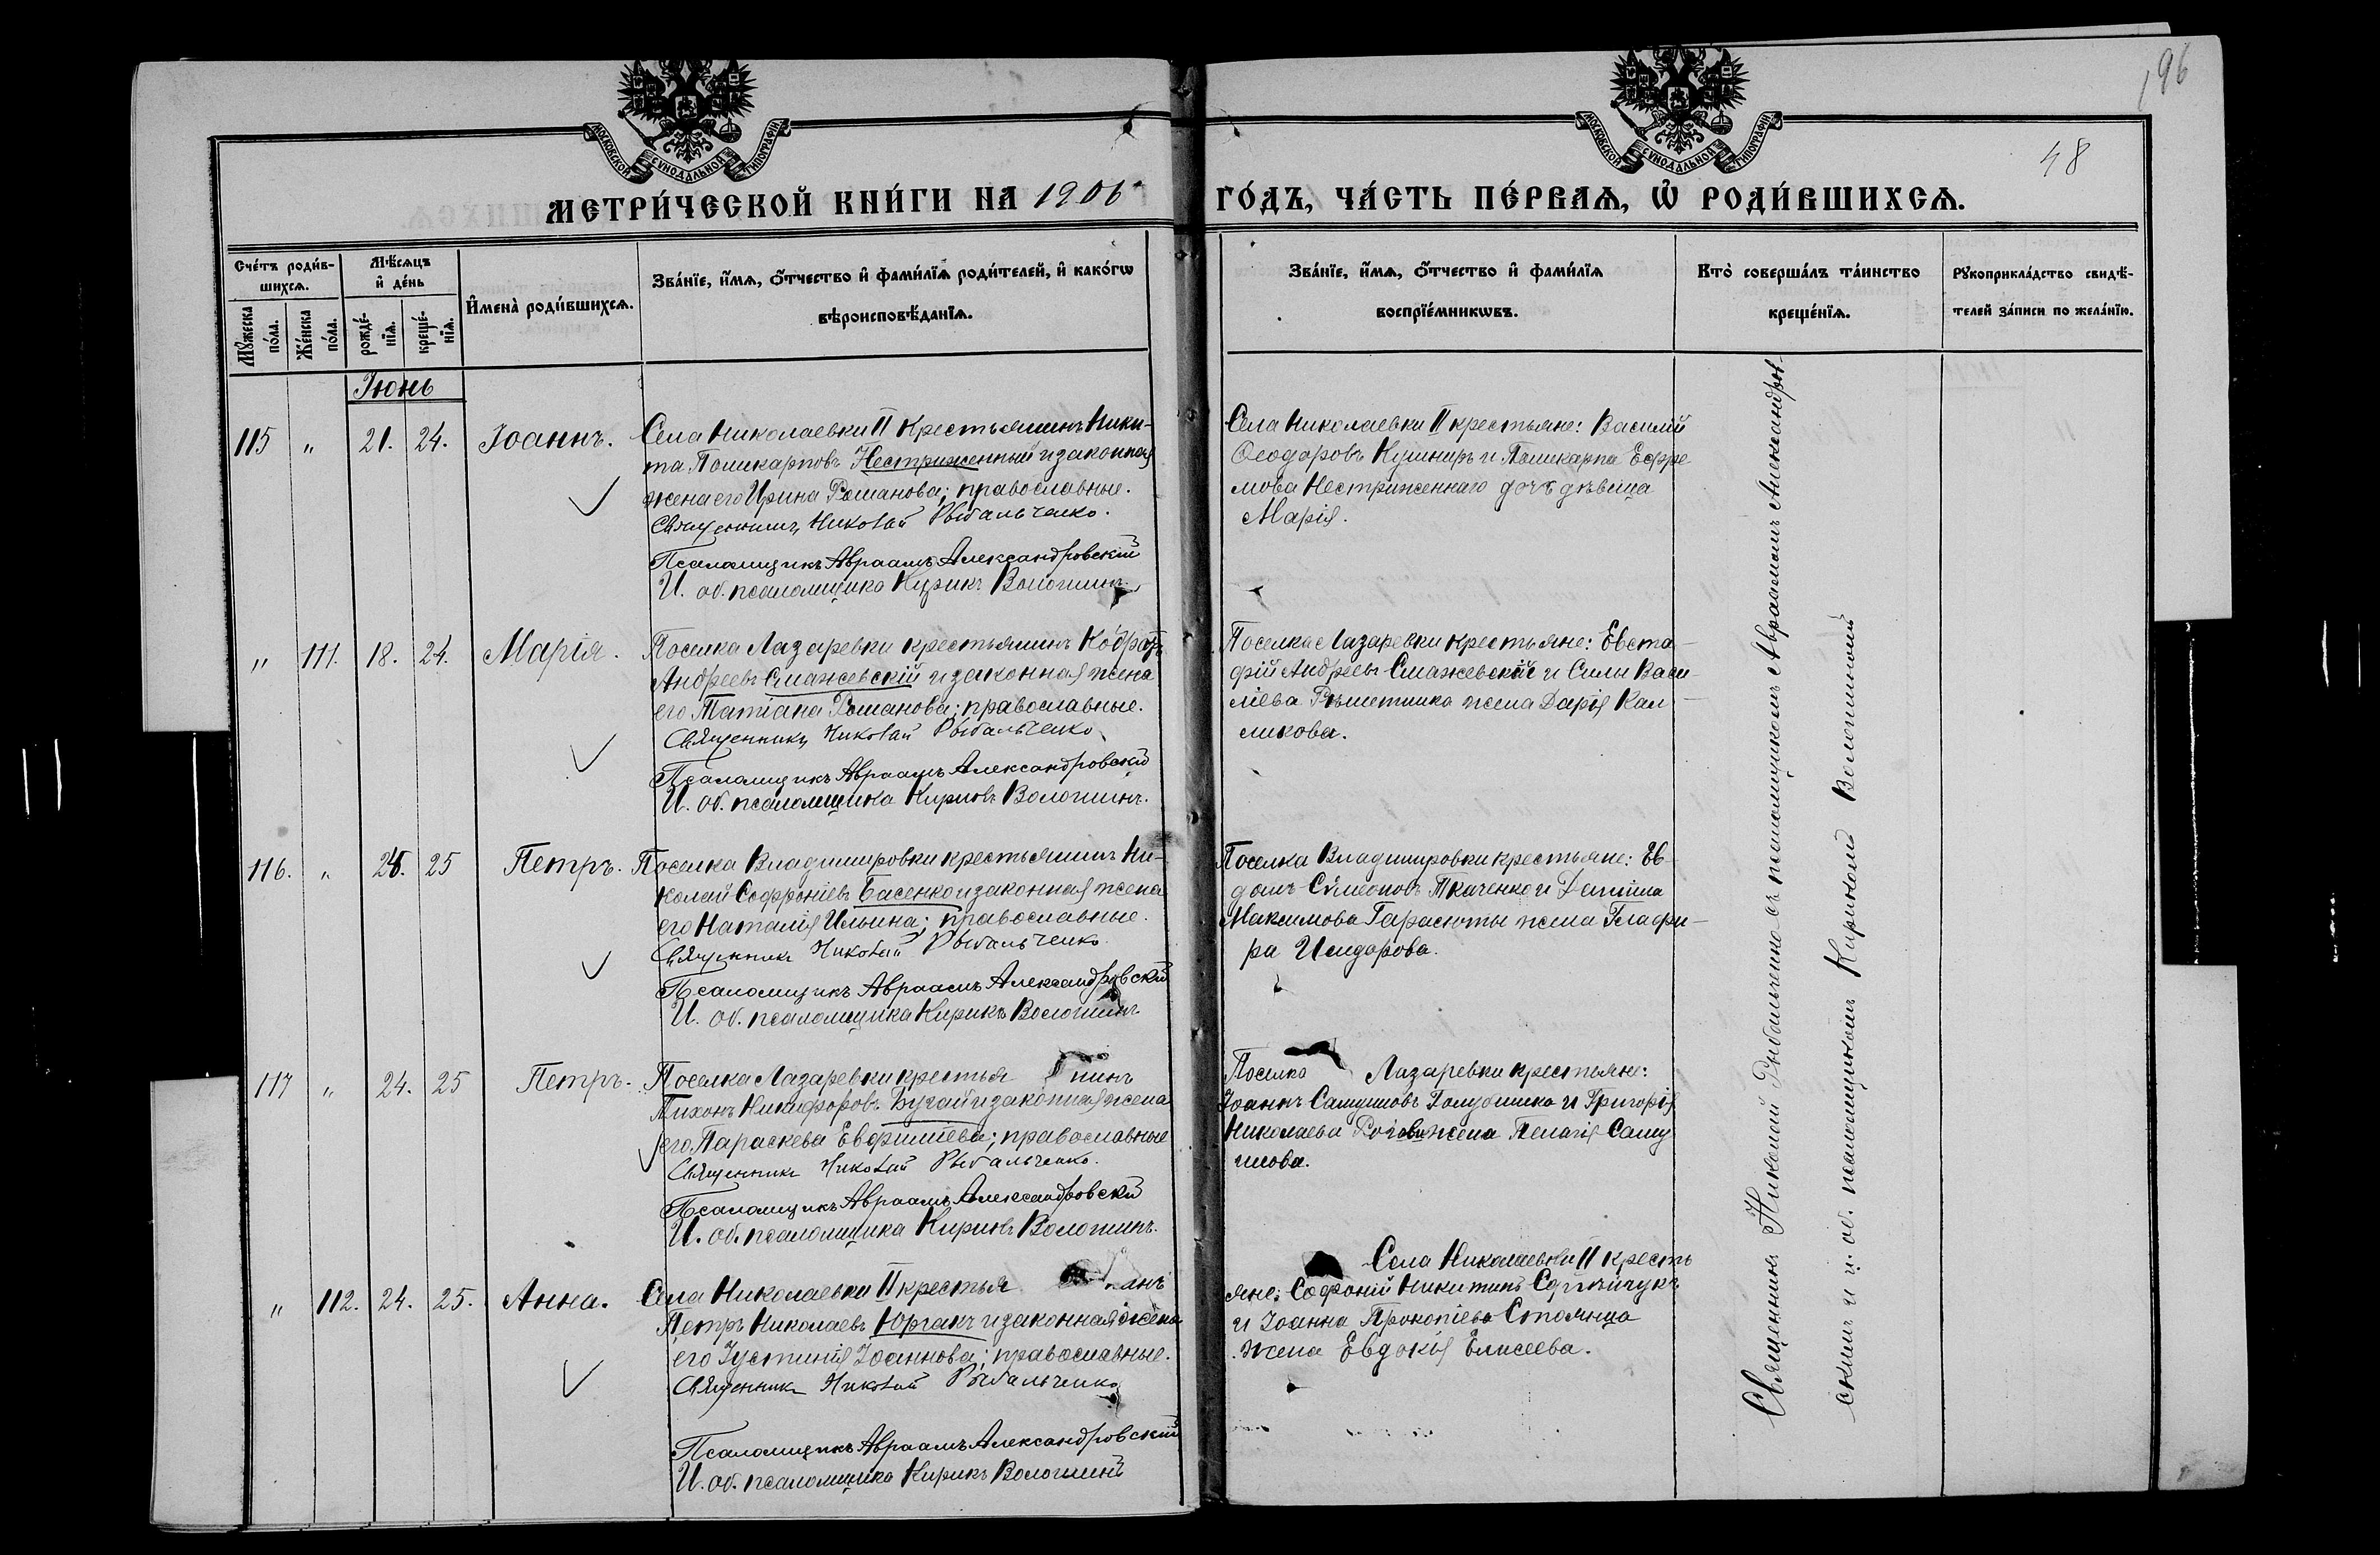 196
48
МОСКОВСКОЙ СѴНОДАЛЬНОЙ ТИПОГРАФІИ
МОСКОВСКОЙ СѴНОДАЛЬНОЙ ТИПОГРАФІИ
МЕТРИ́ЧЕСКОЙ КНИ́ГИ НА 1906
ГО́ДЪ, ЧА́СТЬ ПЕ́РВАѦ, Ѿ РОДИ́ВШИХСѦ.
Сче́тъ роди́в-
шихсѧ.
Мꙋ́жеска по́ла.
Же́нска по́ла.
Мѣ́сяцъ и де́нь
рожде́-
нїѧ.
креще́-
нїѧ.
Имена̀ роди́вшихсѧ.
Зва́нїе, и́мѧ, о́тчество и фами́лїѧ роди́телей, и како́гѡ
вѣроисповѣ́данїѧ.
Зва́нїе, и́мѧ, о́тчество и фами́лїѧ
воспрїе́мникѡвъ.
Кто̀ соверша́лъ та́инство
креще́нїѧ.
Рꙋкоприкла́дство свидѣ́-
телей за́писи по жела́нїю.
Іюнь
115 " 21. 24. Іоаннъ.
Села Николаевки II крестьянинъ Ники-
та Поликарповъ Нестриженный и законная
жена его Ирина Романова; православные.
Священникъ Николай Рыбальченко.
Псаломщикъ Авраамъ Александровскій
И. об. псаломщика Кирикъ Волошинъ.
Села Николаевки II крестьяне: Василій
Ѳеодоровъ Кушниръ и Поликарпа Ефре
мова Нестриженнаго дочь дѣвица
Марія.
" 111. 18. 24. Марія.
Поселка Лазаревки крестьянинъ Кодратъ
Андреевъ Смажевскій и законная жена
его Татіана Романова; православные.
Священникъ Николай Рыбальченко
Псаломщикъ Авраамъ Александровскій
И. об. псаломщика Кирикъ Волошинъ.
Поселка Лазаревки крестьяне: Евста-
фій Андреевъ Смажевскій и Силы Васи-
ліева Рѣшетника жена Дарія Кал-
ликова.
116. " 25 Петръ.
Поселка Владимировки крестьянинъ Ни-
колай Софроніевъ Басенко и законная жена
его Наталія Ильина; православные.
Священникъ Николай Рыбальченко.
Псаломщикъ Авраамъ Александровскій
И. об. псаломщика Кирикъ Волошинъ
Поселка Владимировки крестьяне: Ев-
домъ Сѵмеоновъ Ткаченко и Даніила
Максимова Гарасюты жена Глафи-
ра Исидорова.
117 " 24. 25 Петръ.
Поселка Лазаревки крестья нинъ
Тихонъ Никифоровъ Бугай и законная жена
его Параскева Евфиміева; православные
Священникъ Николай Рыбальченко.
Псаломщикъ Авраамъ Александровскій
И. об. псаломщика Кирикъ Волошинъ.
Поселка Лазаревки крестьяне:
Іоаннъ Самуиловъ Голубишко и Григорія
Николаева жена Пелагія Саму
илова.
" 112. 24. 25. Анна.
Села Николаевки II крестья
Петръ Николаевъ Юрганъ и законная жена
его Іустинія Іоаннова; православные.
Священникъ Николай Рыбальченко
Псаломщикъ Авраамъ Александровскій
И. об. псаломщика Кирикъ Волошинъ
Села Николаевки II кресть
яне: Софроній Никитинъ
и Іоанна Прокопіева Стоянца
жена Евдокія Елисеева.
Священникъ Николай Рыбальченко съ псаломщикомъ Авраамомъ Александров-
скимъ и и. об. псаломщикомъ Кирикомъ Волошинымъ